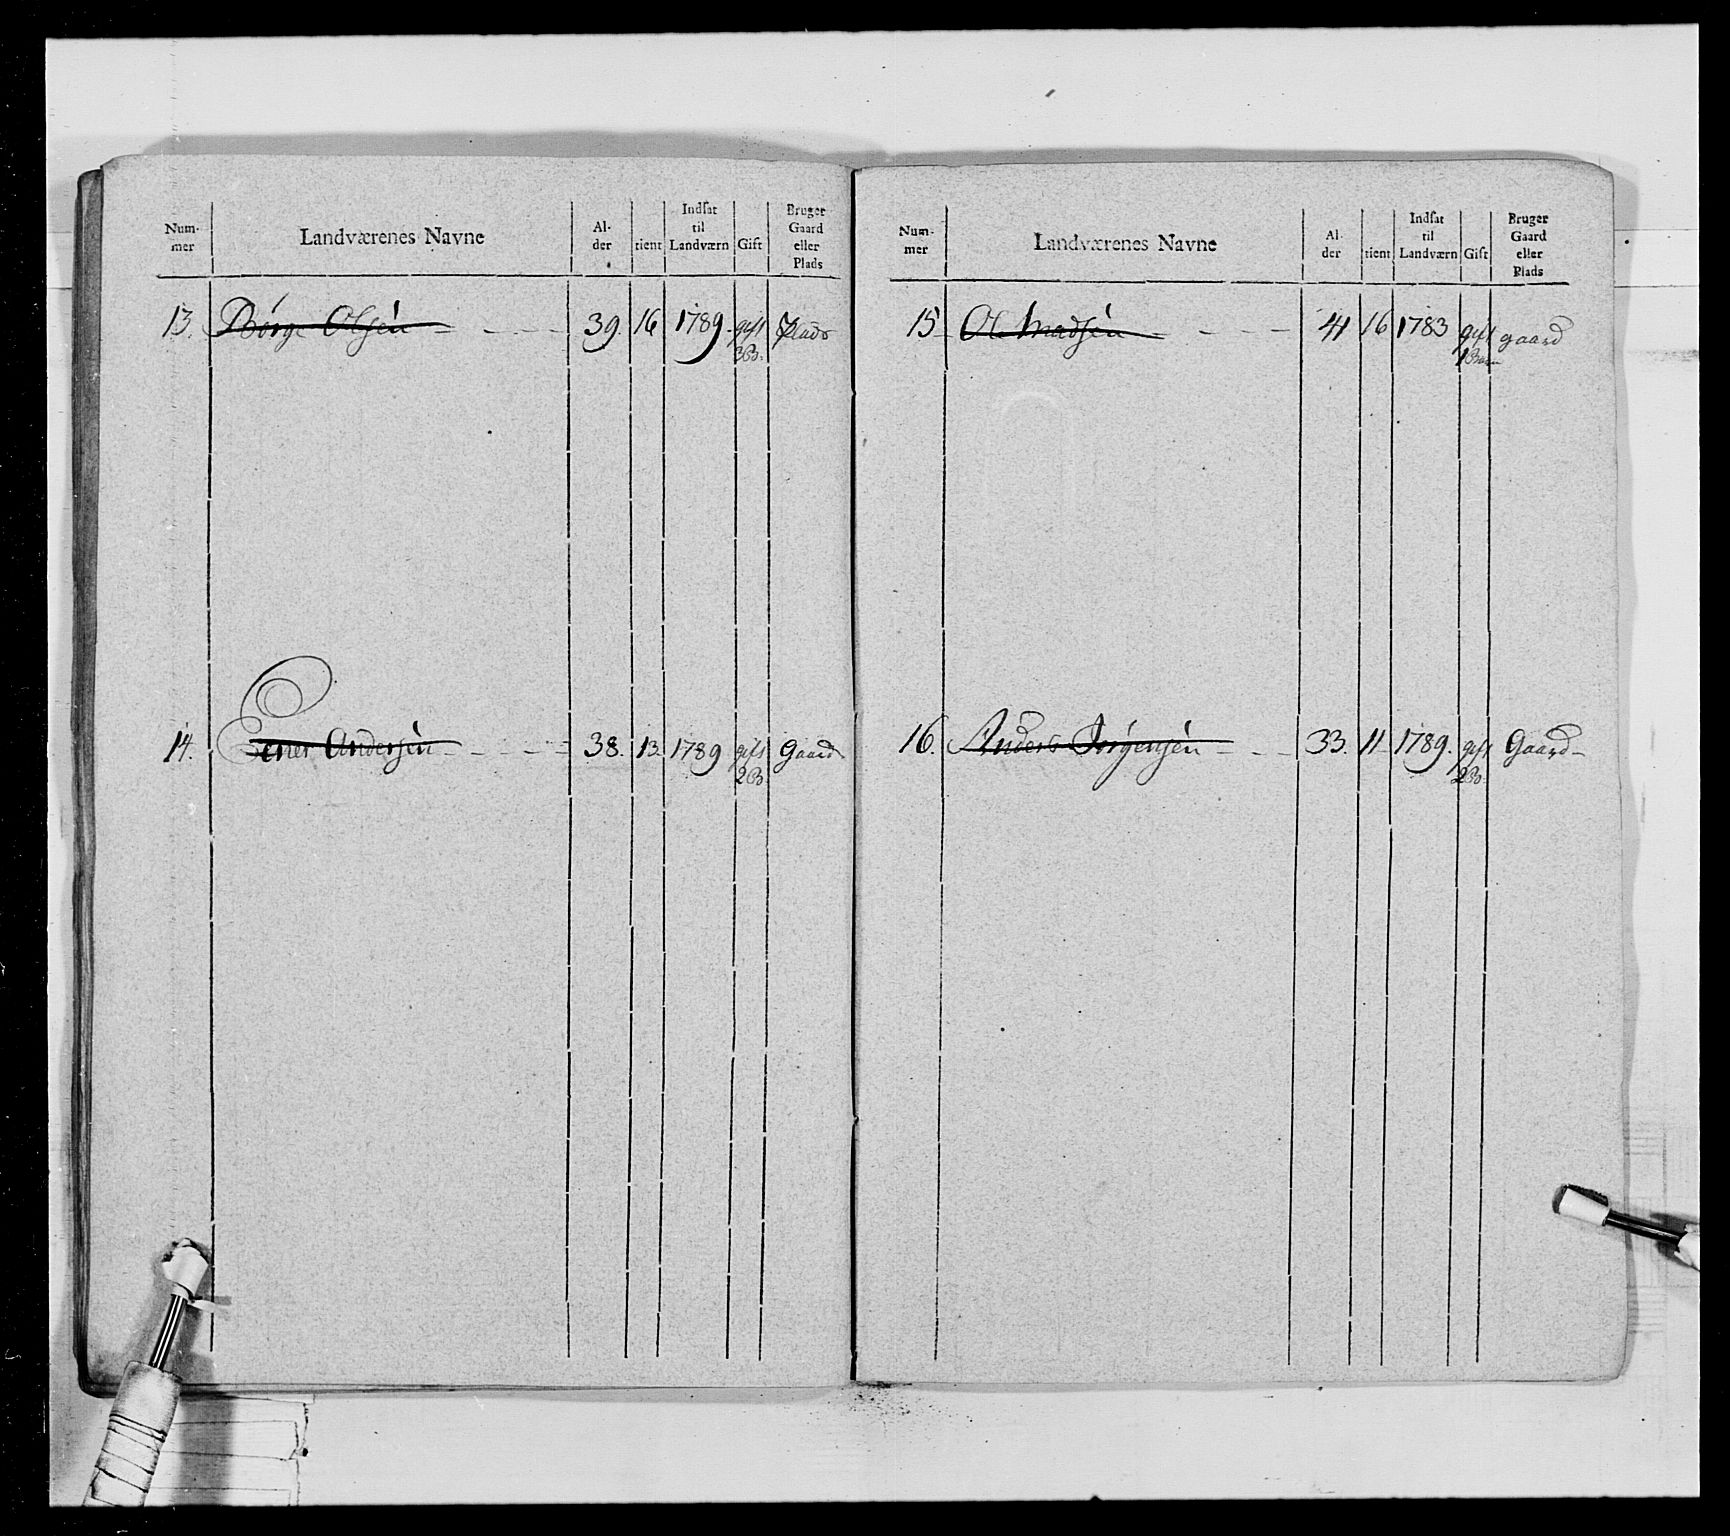 Num-
mer
Landværenes Navne
Al-
der
tient
Indsat
til
Landværn
Gift
Bruger
Gaard
eller
Plads
13. Børge Olsen 39. 16 1789. gift Plads
3B.
14. Einer Andersen 38. 13 1789 gift Gaard
2B
Num-
mer
Landværenes Navne
Al-
der
tient
Indsat
til
Landværn
Gift
Bruger
Gaard
eller
Plads
15 Ole Madsen 41 16 1783 gift gaard
1 Barn
16. Anders Jørgensen 33. 11 1789. gift Gaard
2B